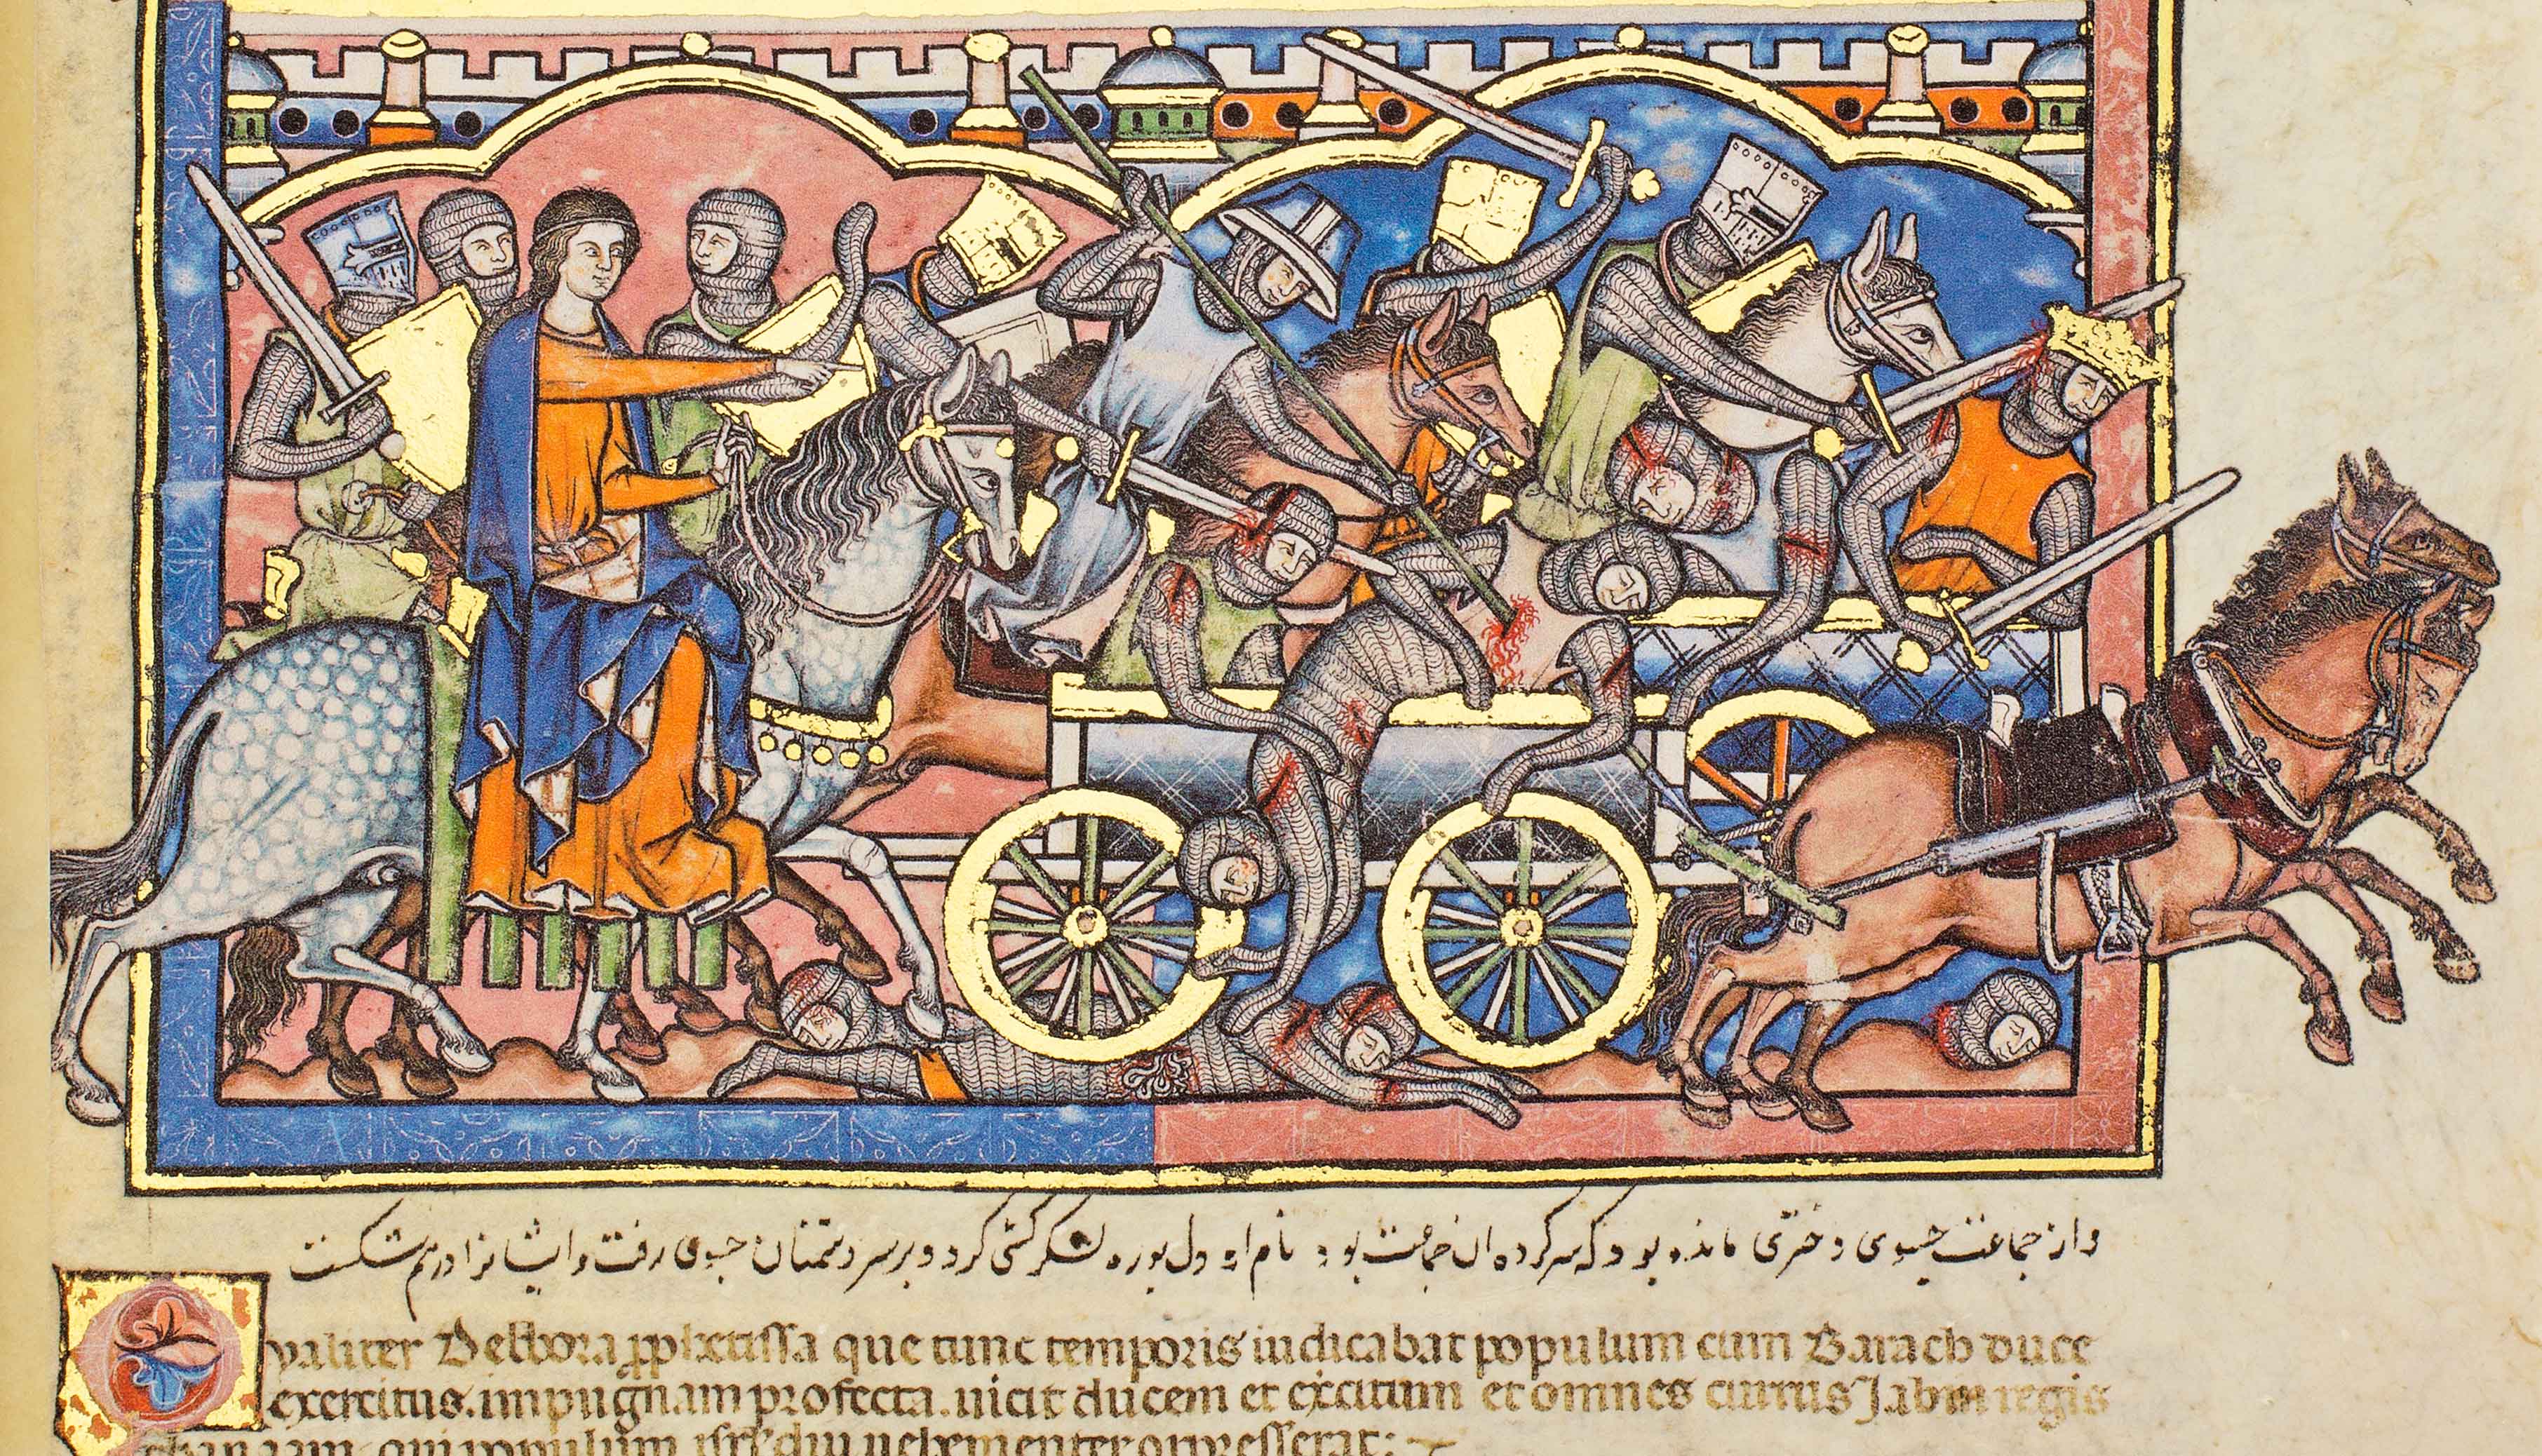 واز جماعت جسوی دختری مانده بود که سرکرده ان جماعت بود نام او دل بوره لشکر کشی کرد و بر سر دشمنان جسوی رفت و ایشانرا درهم شکست
Qualiter Delbora prophetissa que tunc temporis iudicabat populum cum Barach duce
exercitus. in pugnam profecta. uicit ducem et exercitum et omnes currus Jabin regis
chanaam. qui populum isrl diu uehementer oppresserat: